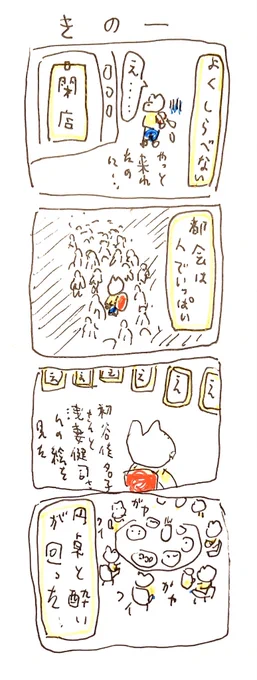 きの一
よくしらべない
え……
やっと
来れ
たの
に…
閉店
都会は
人でいっぱい
え え え え え え
初谷佳名子
さんと
浅妻健司さ
んの絵を
見た
ガヤ
ワイ
ガヤ
ワイ
円卓と酔い
が回った